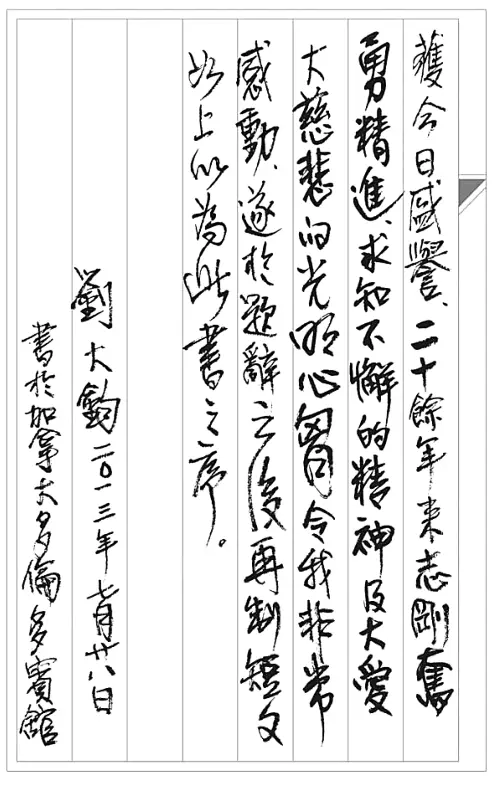 獲今日盛譽、二十餘年來志剛奮
勇精進、求知不懈的精神及大愛
大慈悲的光明心胸令我非常
感動、遂於題辭之後再制短文
如上以為此書之序。
劉大鈞二〇一三年七月廿八日
書於加拿大多倫多賓館